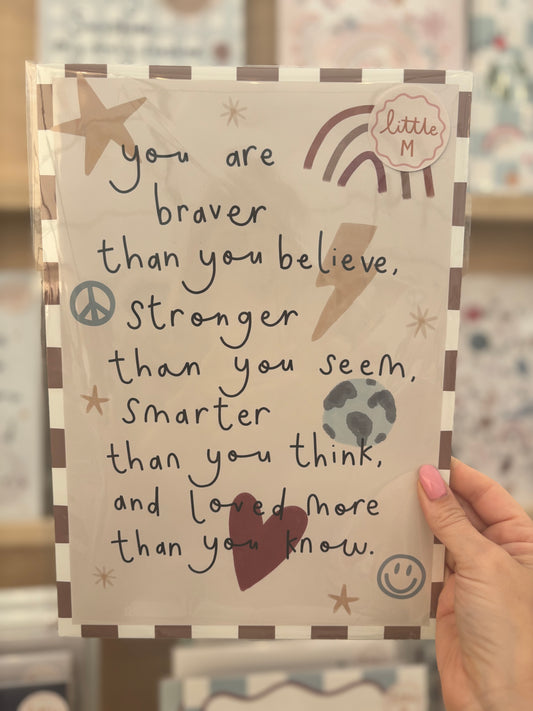 little
M
you are
braver
than you believe,
stronger
than you seem,
smarter
than you think,
and loved more
than you know.